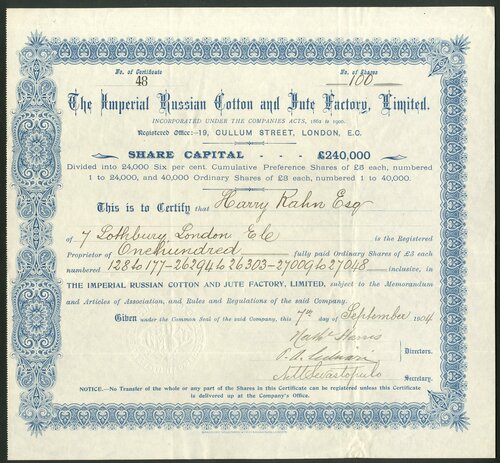 No. of Certificate
48
No. of Shares
100
The Imperial Russian Cotton and Jute Factory, Limited.
INCORPORATED UNDER THE COMPANIES ACTS, 1862 to 1900.
Registered Office:—19, CULLUM STREET, LONDON, E.C.
SHARE CAPITAL - - - £240,000
Divided into 24,000 Six per cent. Cumulative Preference Shares of £5 each, numbered
1 to 24,000, and 40,000 Ordinary Shares of £3 each, numbered 1 to 40,000.
This is to Certify that Harry Kahn Esq
of 7 Lothbury London E C is the Registered
Proprietor of One hundred fully paid Ordinary Shares of £3 each
numbered 128 to 177 - 26294 to 26303 - 27009 to 27048 inclusive, in
THE IMPERIAL RUSSIAN COTTON AND JUTE FACTORY, LIMITED, subject to the Memorandum
and Articles of Association, and Rules and Regulations of the said Company.
Given under the Common Seal of the said Company, this 7th day of September 1904
Directors.
Secretary.
NOTICE.—No Transfer of the whole or any part of the Shares in this Certificate can be registered unless this Certificate
is delivered up at the Company's Office.